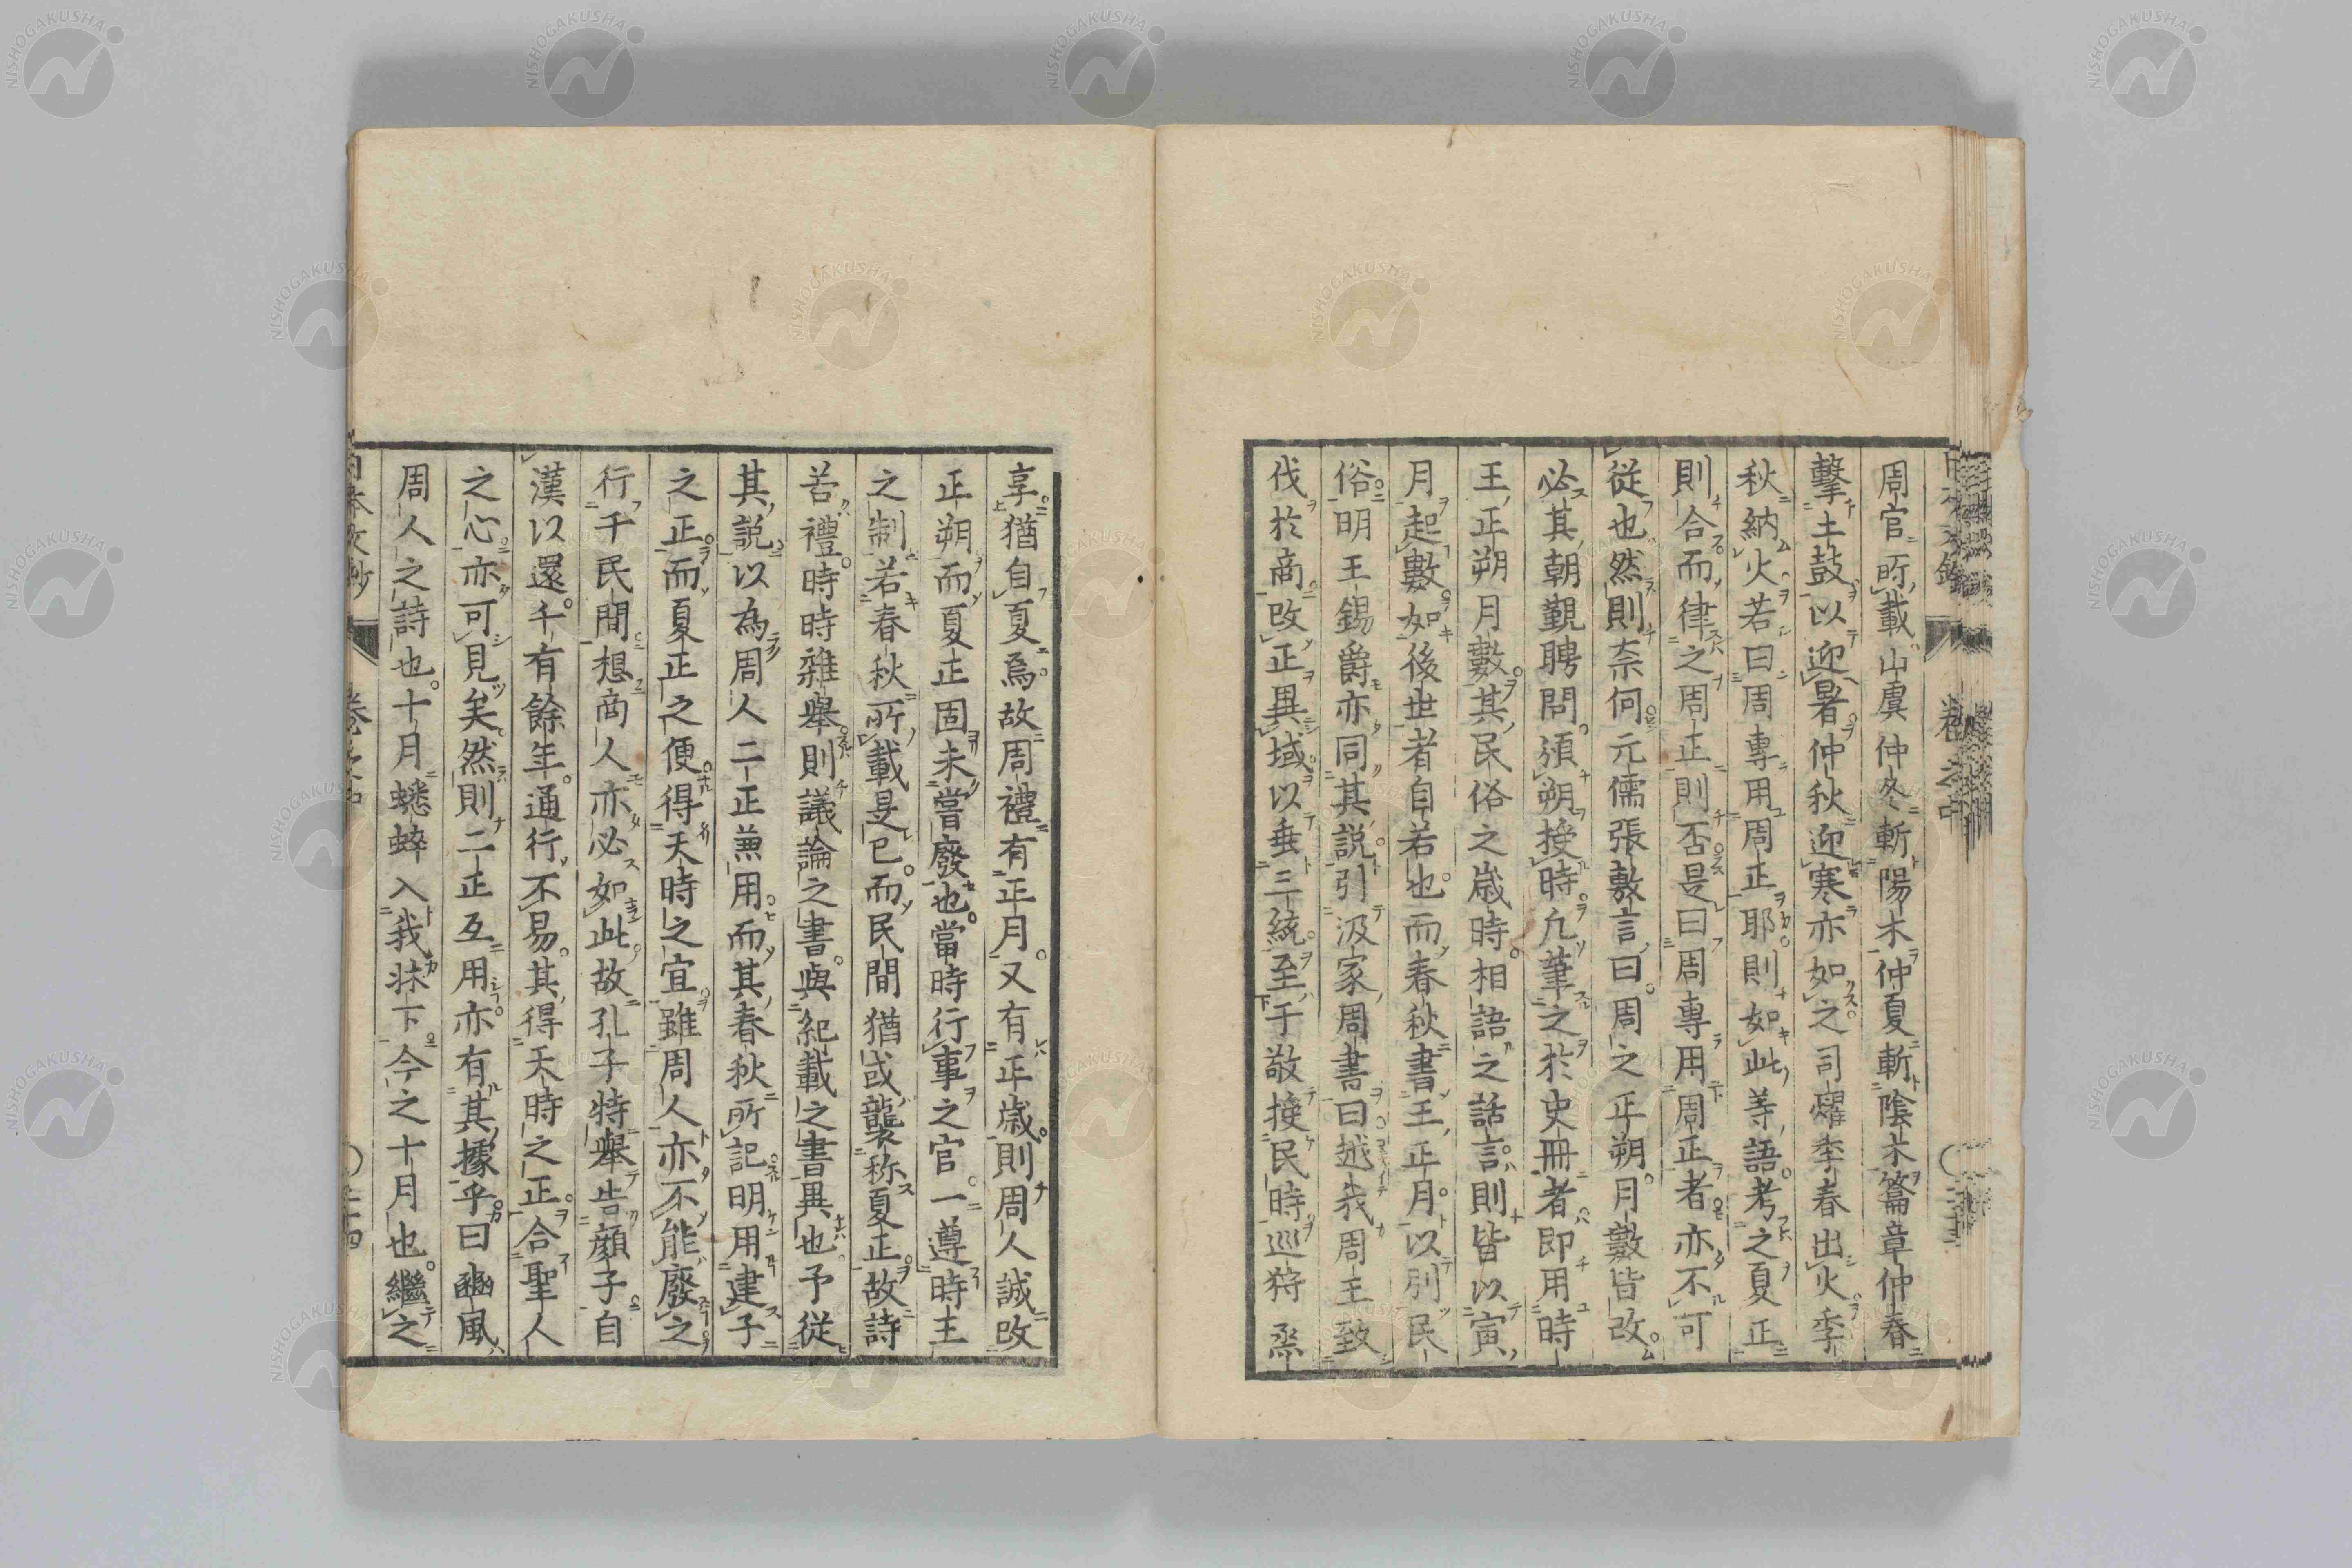 周官所載山虞仲冬斬陽木仲夏斬陰木籥章仲春
擊土鼓以迎暑仲秋迎寒亦如之司爟季春出火季
秋納火若曰周專用周正耶則如此等語考之夏正
則合而律之周正則否是曰周專用周正者亦不可
從也然則奈何元儒張敷言曰周之正朔月數皆改
必其朝覲聘問頒朔授時凡筆之於史冊者即用時
王正朔月數其民俗之歲時相語之話言則皆以寅
月起數如後世者自若也而春秋書王正月以別民
俗明王錫爵亦同其說引汲冢周書曰越我周王致
伐於商改正異域以垂三統至于敬授民時巡狩烝
享猶自夏焉故周禮有正月又有正歲則周人誠改
正朔而夏正固未嘗廢也當時行事之官一遵時王
之制若春秋所載是已而民間猶或襲称夏正故詩
若禮時時雜舉則議論之書與紀載之書異也予從
其說以為周人二正兼用而其春秋所記明用建子
之正而夏正之便得天時之宜雖周人亦不能廢之
行千民間想商人亦必如此故孔子特舉告顏子自
漢以還千有餘年通行不易其得天時之正合聖人
之心亦可見矣然則二正互用亦有其據乎曰豳風
周人之詩也十月蟋蟀入我牀下今之十月也繼之
卷之中
NISHOGAKUSHA